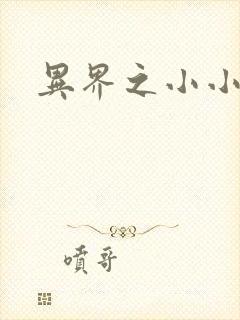 異界之小小
噴哥